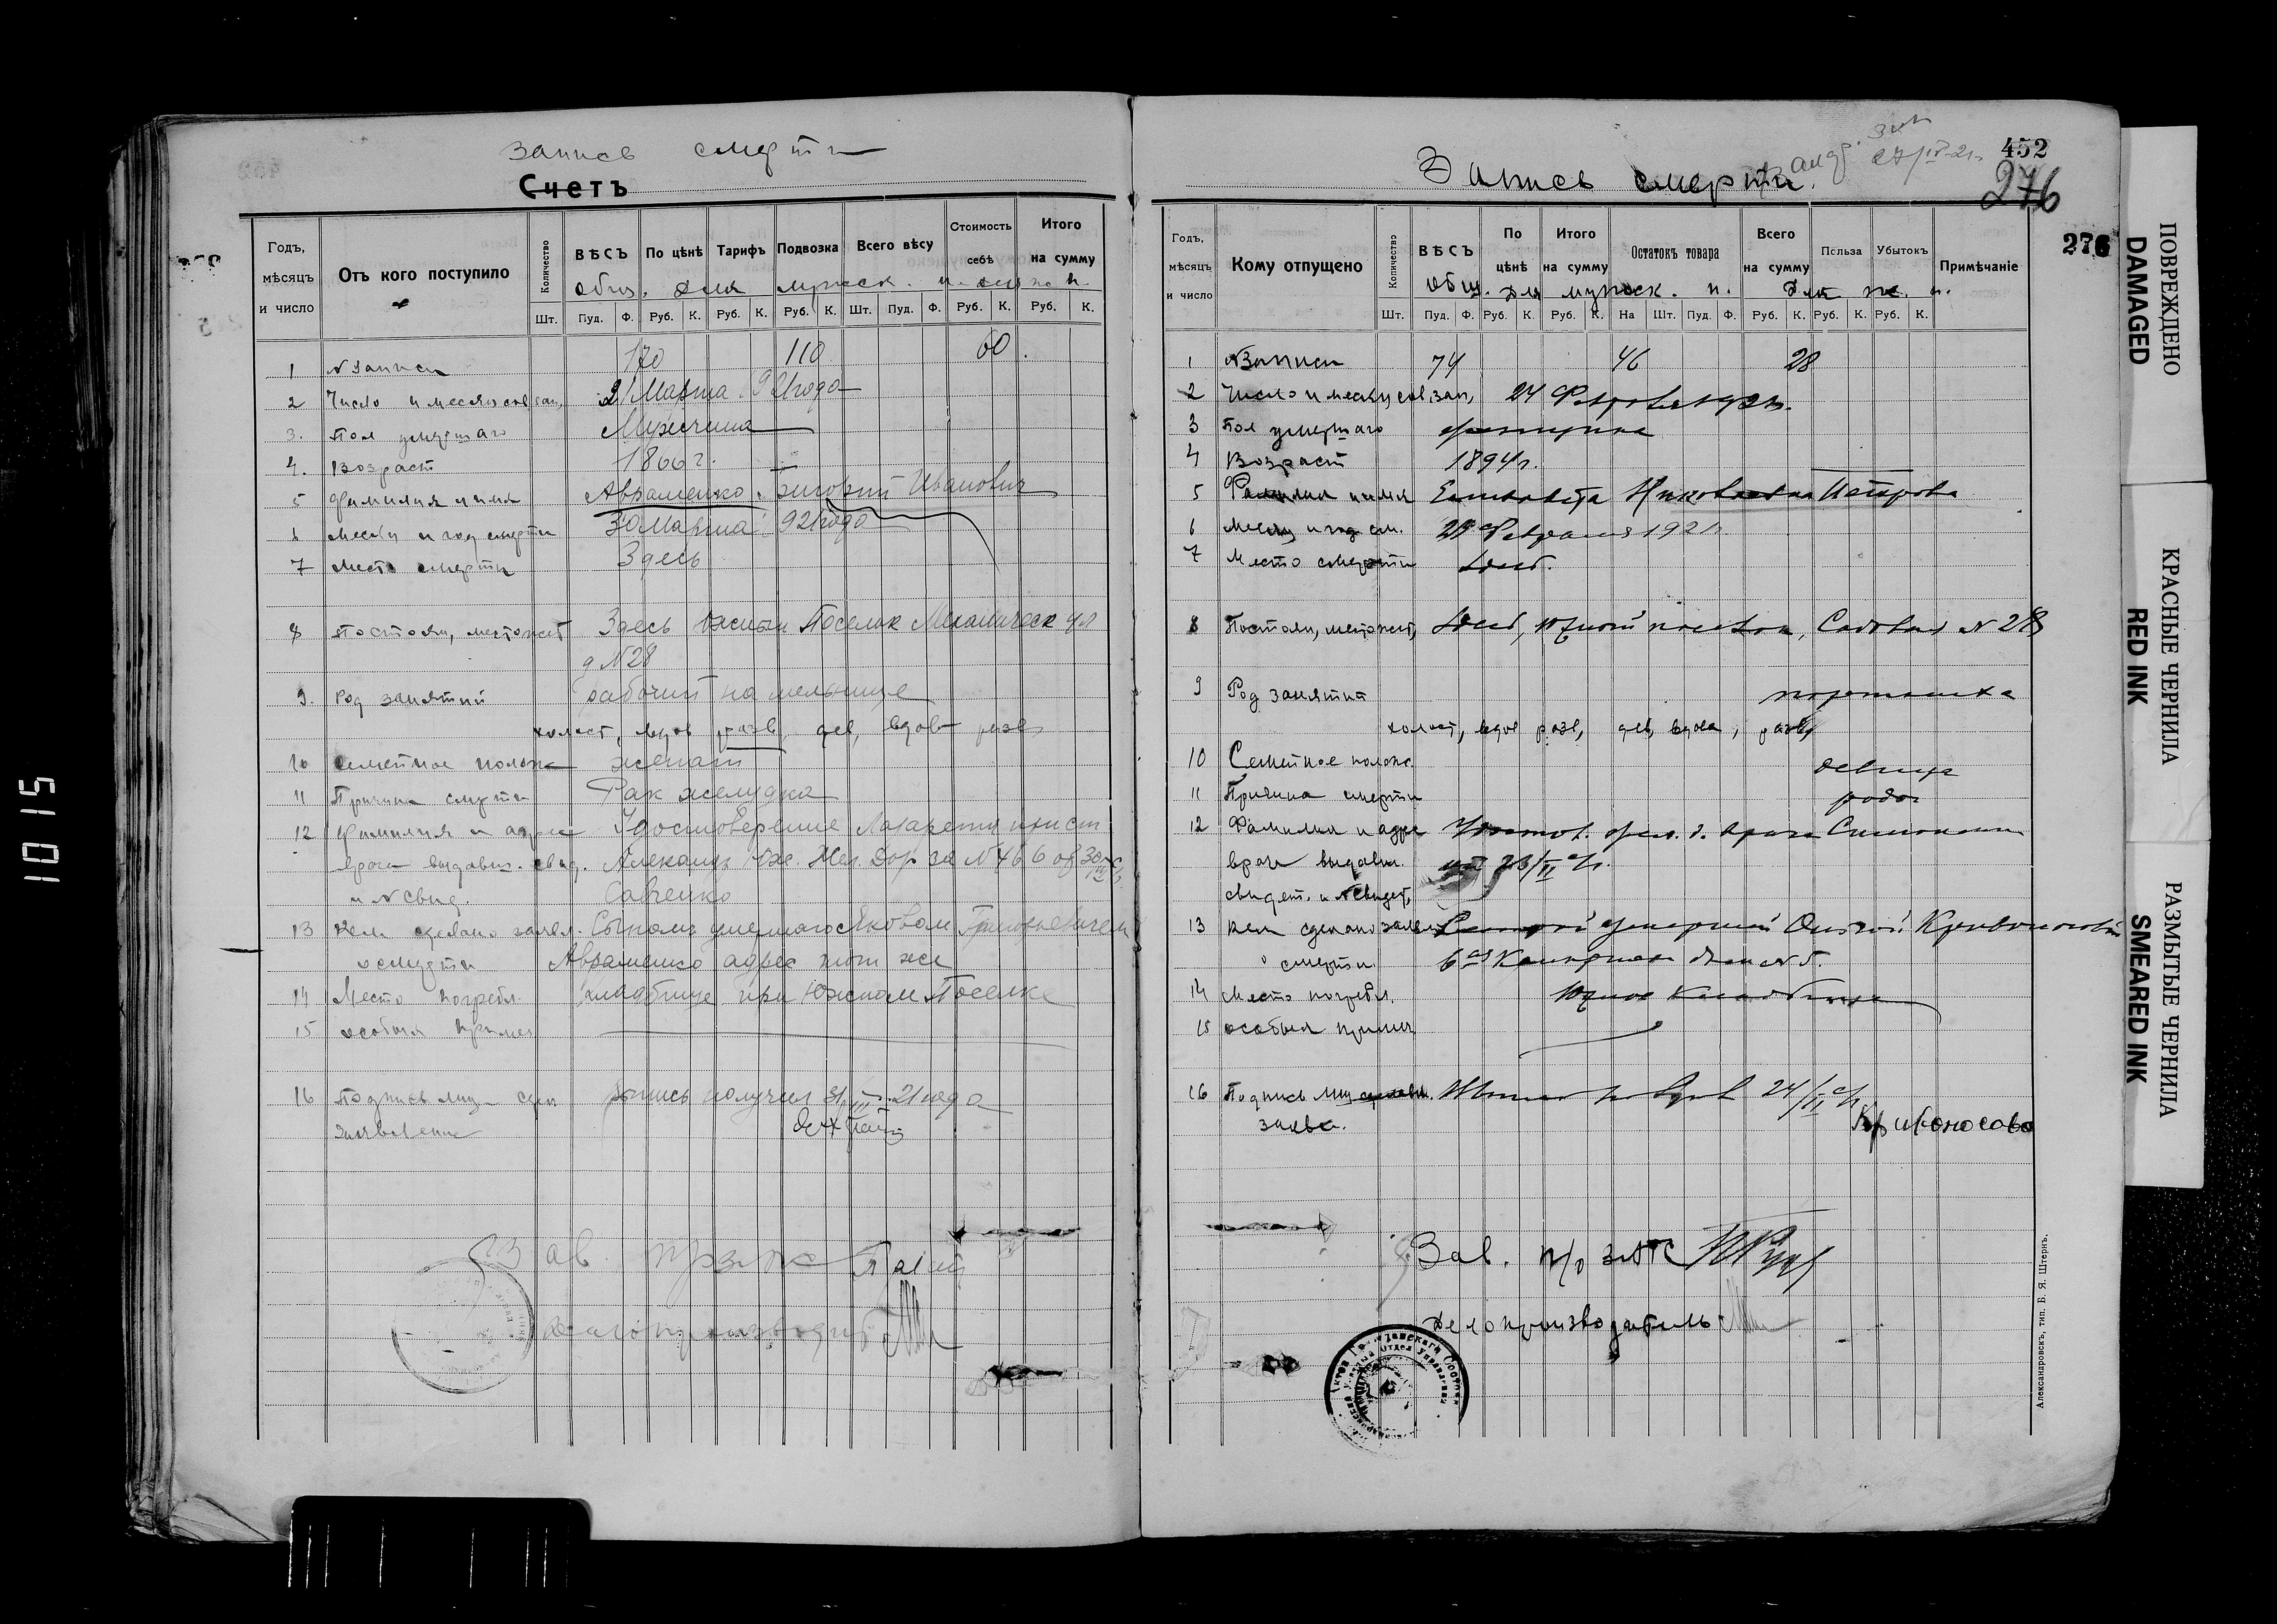 Запись смерти
Счетъ
Годъ, мѣсяцъ и число
Отъ кого поступило
Количество
ВѢСЪ
По цѣнѣ
Тарифъ
Подвозка
Всего вѣсу
Стоимость себѣ
Итого на сумму
общ. для мужск. п.
Шт. Пуд. Ф. Руб. К. Руб. К. Руб. К. Шт. Пуд. Ф. Руб. К. Руб. К.
1 N записи 170 110 60
2 Число и месяц 21 Марта 921 года
3. Пол умершаго Мужчина
4. Возраст 1866 г.
5 Фамилия и имя Авраменко Иванович
6 Месяц и год смерти 30 Марта 921 года
7 Место смерти Здесь
8 Постоян, местожит Здесь Южный Поселок Механическ ул
д N 28
9. Род занятий рабочий на мельнице
холост, вдов разв, дев, вдов разв
10 Семейное полож женат
11 Причина смерти Рак желудка
12 Фамилия и адрес Удостоверение Лазарета прист
врача выдавш. свид. Александ Юж. Жел. Дор за N 466 от 30
и N свид. Савченко
13 Кем сделано заявл. Сыном умершаго Яковом
о смерти Авраменко адрес тот же
14 Место погребл. кладбище при Южном Поселке
15 особыя примеч
16 Подпись лица сдел запись получил 31/III 21 года
заявление
Зав.
Делопроизводит
452
Запись смерти.
27/IV-21 г.
276
276
Годъ, мѣсяцъ и число
Кому отпущено
Количество
ВѢСЪ
По цѣнѣ
Итого на сумму
Остатокъ товара
Всего на сумму
Польза
Убытокъ
Примѣчаніе
общ. для мужск. п. для ж. п.
Шт. Пуд. Ф. Руб. К. Руб. К. На Шт. Пуд. Ф. Руб. К. Руб. К. Руб. К.
1 N Записи 74 46 28
2 Число и месяц сов, зап, 24 Февраля 1921 г.
3 Пол умершаго женщина
4 Возраст 1894 г.
5 Фамилия и имя Елизавета Петрова
6 Месяц и год см. Февраля 1921 г.
7 Место смерти Здесь.
8 Постоян, местожит, Здесь, Южный поселок, Садовая N 28
9 Род занятия портниха
холост, вдов разв, дев, вдова, разв,
10 Семейное полож. девица
11 Причина смерти роды
12 Фамилия и адре врача
врача выдавш. 23/II
свидет. и N свидет,
13 Кем сделано заявл умершей
о смерти
14 Место погребл. Южное Кладбище
15 особыя примеч
16 Подпись лиц сделавш. 24/II
заявл. Кривоносова
Зав. п/о ЗАГС
Делопроизводитель
Александровскъ, тип. Б. Я. Штернъ.
ПОВРЕЖДЕНО
DAMAGED
КРАСНЫЕ ЧЕРНИЛА
RED INK
РАЗМЫТЫЕ ЧЕРНИЛА
SMEARED INK
10 15